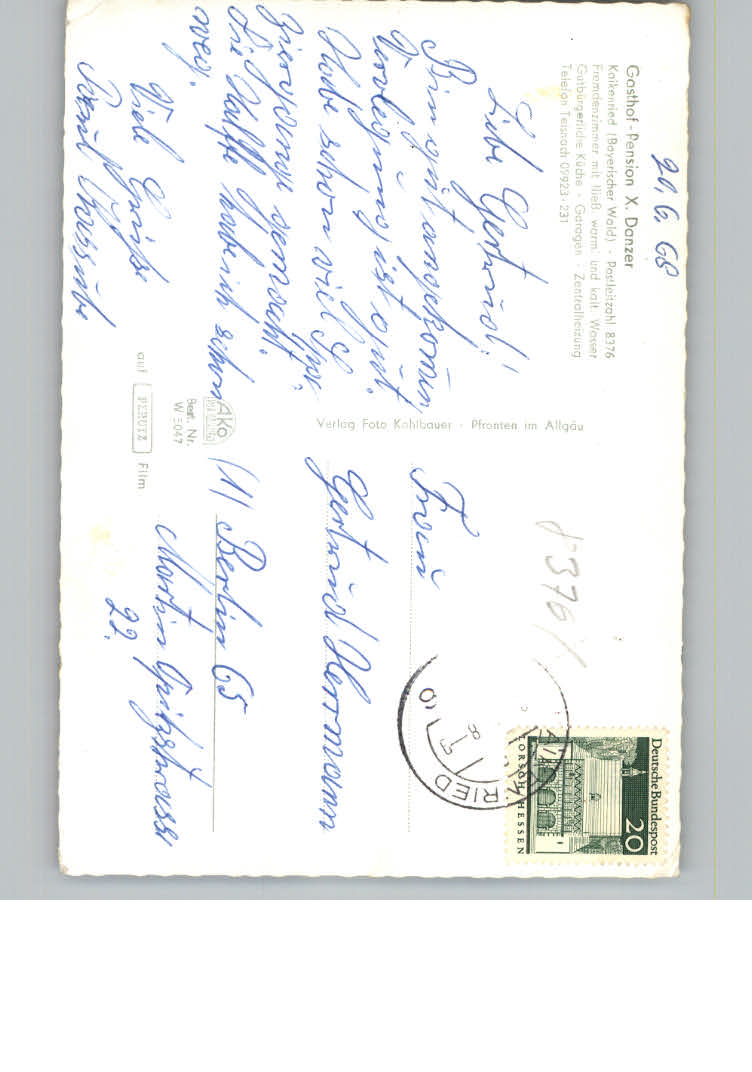 20.6.68
Gasthof-Pension X. Danzer
Kaikenried (Bayerischer Wald) · Postleitzahl 8376
Fremdenzimmer mit fließ. warm. und kalt. Wasser
Gutbürgerliche Küche · Garagen · Zentralheizung
Telefon Teisnach 09923 · 231
Liebe Gertrud!
Bin gut angekommen,
Verlegung ist gut.
Habe schon viel Spa-
ziergänge gemacht.
Die Hälfte habe ich schon
weg.
Viele Grüße
Verlag Foto Kohlbauer · Pfronten im Allgäu
AKO
Best. Nr.
W 5047
auf PERUTZ Film
8376
Deutsche Bundespost
20
LORSCH/HESSEN
RIED
Frau
Gertrud Herrmann
(1) Berlin 65
Martin Opitzstrasse
22.